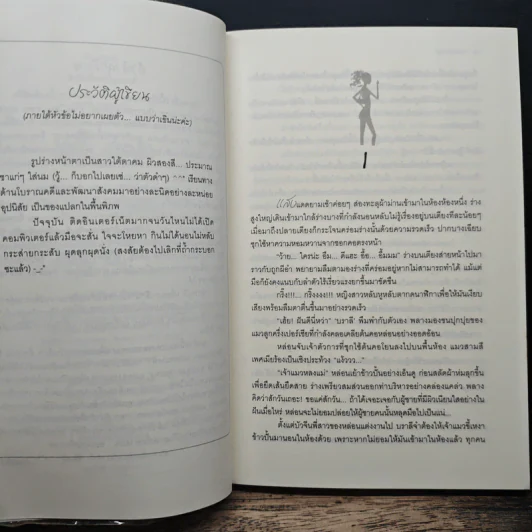 ประวัติผู้เขียน
(ภายใต้หัวข้อไม่อยากเผยตัว... แบบว่าเขินน่ะค่ะ)
รูปร่างหน้าตาเป็นสาวใต้ตาคม ผิวสองสี... ประมาณ
ชาแก่ๆ ใส่นม (วู้... ก็บอกไปเลยเซ่... ว่าตัวดำๆ) ^^" เรียนทาง
ด้านโบราณคดีและพัฒนาสังคมมาอย่างละนิดอย่างละหน่อย
อุปนิสัย เป็นของแปลกในพื้นพิภพ
ปัจจุบัน ติดอินเตอร์เน็ตมากจนวันไหนไม่ได้เปิด
คอมพิวเตอร์แล้วมือจะสั่น ใจจะโหยหา กินไม่ได้นอนไม่หลับ
กระส่ายกระสับ ผุดลุกผุดนั่ง (สงสัยต้องไปเลิกที่ถ้ำกระบอก
ซะแล้ว) -_-"
1
แสงแดดยามเช้าค่อยๆ ส่องทะลุผ้าม่านเข้ามาในห้องห้องหนึ่ง ร่าง
สูงใหญ่เดินเข้ามาใกล้ร่างบางที่กำลังนอนหลับไม่รู้เรื่องอยู่บนเตียงทีละน้อยๆ
เมื่อมาถึงปลายเตียงก็กระโจนคร่อมร่างนั้นด้วยความรวดเร็ว ปากบางเฉียบ
ซุกไซ้หาความหอมหวานจากซอกคอตรงหน้า
"ว้าย... ใครน่ะ อืม... ดีแฮะ อื้อ... อื้มมม" ร่างบนเตียงส่ายหน้าไปมา
ราวกับถูกผีอำ พยายามลืมตามองร่างที่คร่อมอยู่หากไม่สามารถทำได้ แม้แต่
มือก็ยังคงแนบกับลำตัวไร้เรี่ยวแรงยกขึ้นมาขัดขืน
กริ๊ง!!!... กริ๊งงงง!!! หญิงสาวหลับหูหลับตากดนาฬิกาเพื่อให้มันเงียบ
เสียงพร้อมลืมตาตื่นขึ้นมาอย่างรวดเร็ว
"เฮ้ย! ฝันดีนี่หว่า" บราลี พึมพำกับตัวเอง พลางมองขนปุกปุยของ
แมวลูกครึ่งเปอร์เซียที่กำลังคลอเคลียต้นคอหล่อนอย่างออดอ้อน
หล่อนจับเจ้าตัวการที่ซุกไซ้ต้นคอโยนลงไปบนพื้นห้อง แมวสามสี
เพศเมียร้องเป็นเชิงประท้วง "แง้ววว..."
"เจ้าแมวหลงแม่" หล่อนเย้าข้าวปั้นอย่างเอ็นดู ก่อนสลัดผ้าห่มลุกขึ้น
เพื่อยืดเส้นยืดสาย ร่างเพรียวสมส่วนออกท่าบริหารอย่างคล่องแคล่ว พลาง
คิดว่าสักวันเถอะ! ขอแค่สักวัน... ถ้าได้เจอะเจอกับผู้ชายที่มีมิวเนียนใสอย่างใน
ฝันเมื่อไหร่ หล่อนจะไม่ยอมปล่อยให้ผู้ชายคนนั้นหลุดมือไปเป็นแน่...
ตั้งแต่บัวจีนพี่สาวของหล่อนแต่งงานไป บราลีจำต้องให้เจ้าแมวขี้เหงา
ข้าวปั้นมานอนในห้องด้วย เพราะหากไม่ยอมให้มันเข้ามาในห้องแล้ว ทุกคน